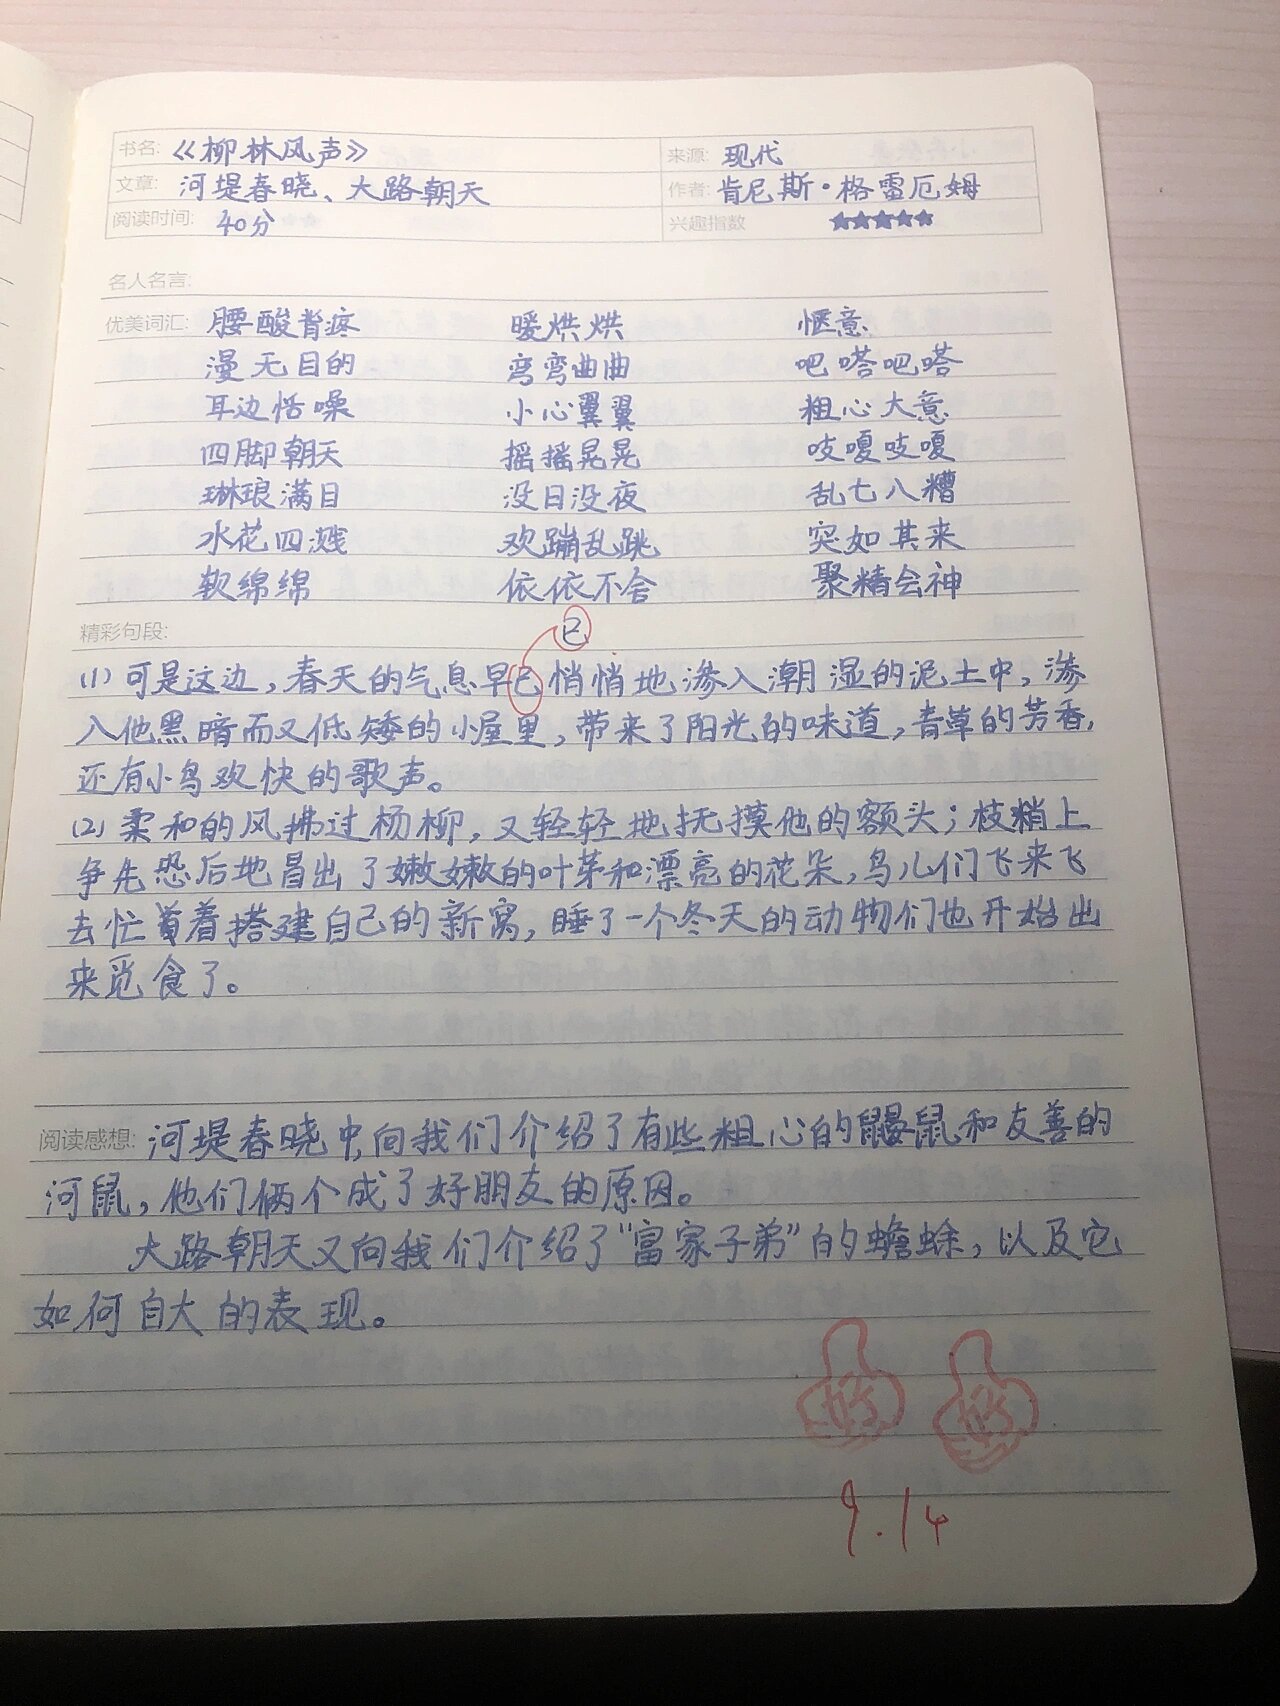 书名: 《柳林风声》 来源: 现代
文章: 河堤春晓、大路朝天 作者: 肯尼斯·格雷厄姆
阅读时间: 40分 兴趣指数 ★★★★★
名人名言:
优美词汇: 腰酸背疼 暖烘烘 惬意
漫无目的 弯弯曲曲 吧嗒吧嗒
耳边恬噪 小心翼翼 粗心大意
四脚朝天 摇摇晃晃 吱嘎吱嘎
琳琅满目 没日没夜 乱七八糟
水花四溅 欢蹦乱跳 突如其来
软绵绵 依依不舍 聚精会神
精彩句段: 已
(1)可是这边,春天的气息早已悄悄地渗入潮湿的泥土中,渗
入他黑暗而又低矮的小屋里,带来了阳光的味道,青草的芳香,
还有小鸟欢快的歌声。
(2)柔和的风拂过杨柳,又轻轻地抚摸他的额头;枝梢上
争先恐后地冒出了嫩嫩的叶芽和漂亮的花朵,鸟儿们飞来飞
去忙着搭建自己的新窝,睡了一个冬天的动物们也开始出
来觅食了。
阅读感想: 河堤春晓中,向我们介绍了有些粗心的鼹鼠和友善的
河鼠,他们俩个成了好朋友的原因。
大路朝天又向我们介绍了“富家子弟”的蟾蜍,以及它
如何自大的表现。
好 好
9.14